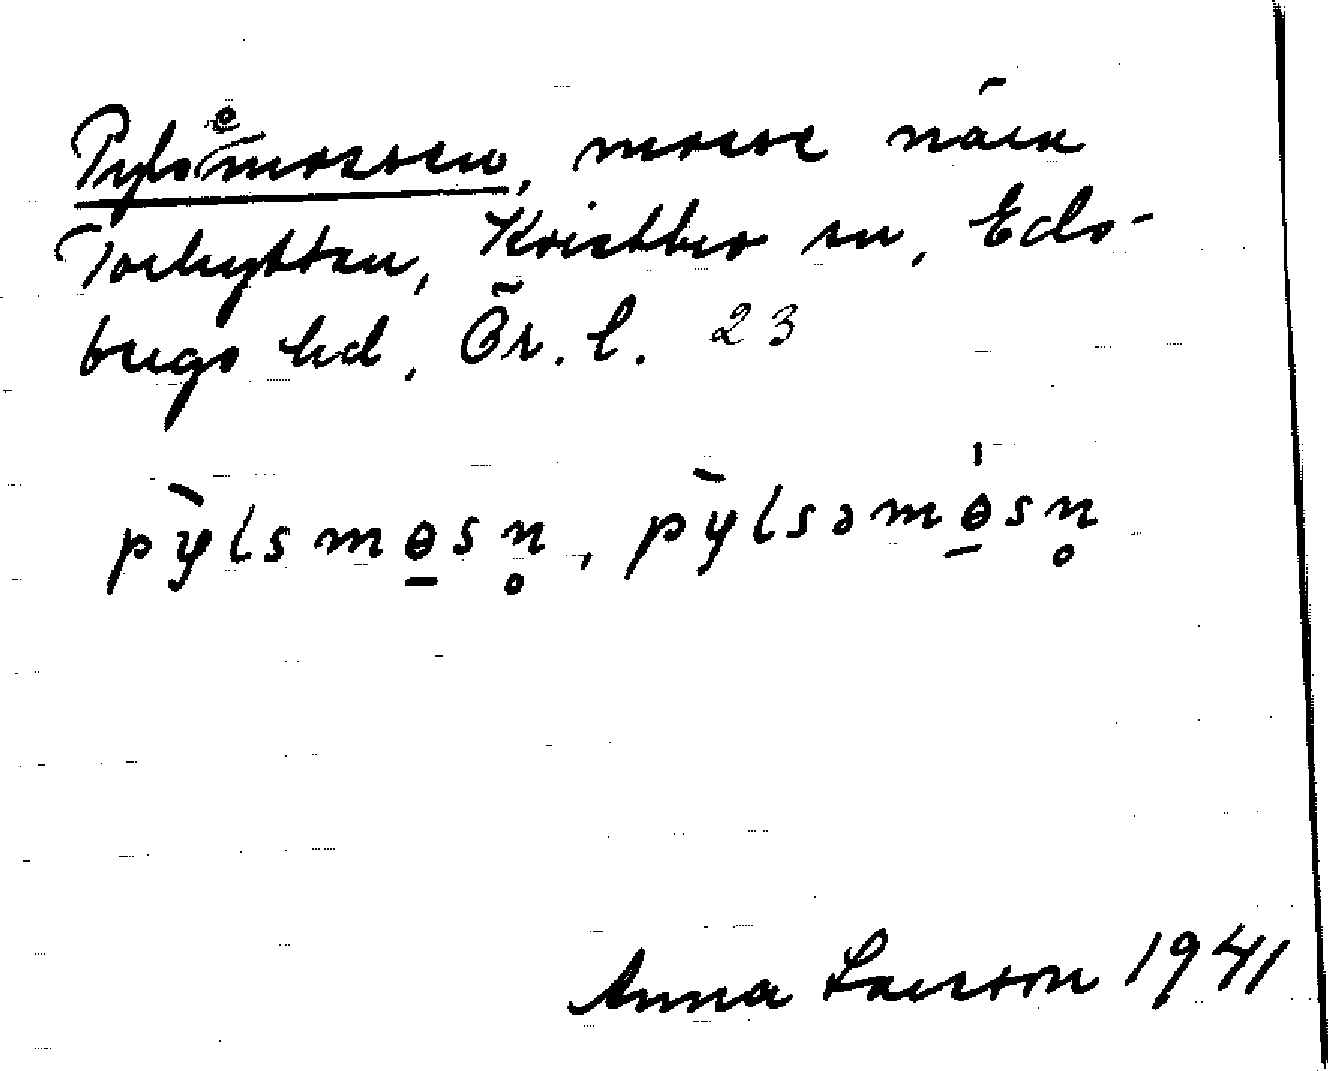 Pyls(e)mossen, mosse nära
Torhyttan, Kvistbro sn, Eds-
bergs hd, Ör. l. 23
pỳlsmɵ̲sn̥, pỳlsəmɵ̲́sn̥
Anna Larsson 1941